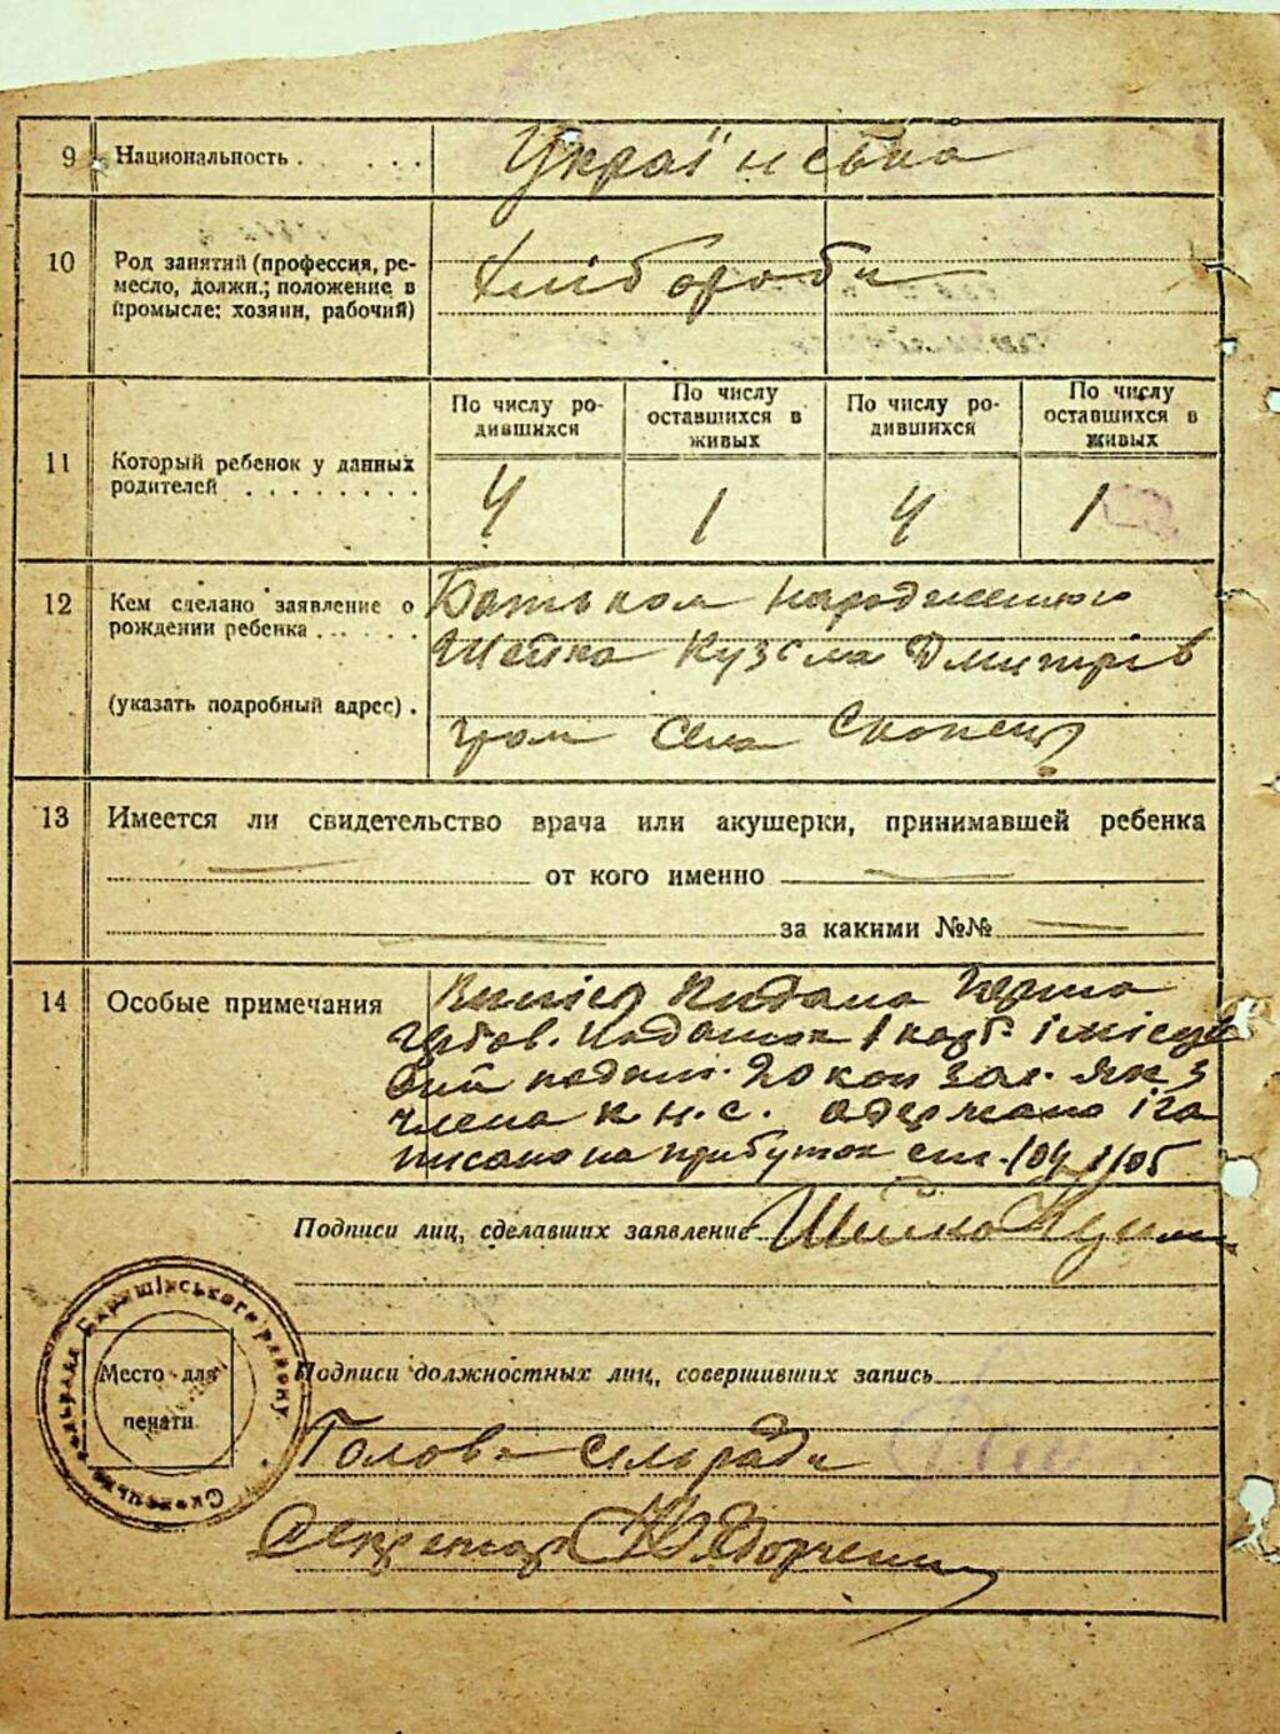 9 Национальность . . . . . . Українська
10 Род занятий (профессия, ре-
месло, должн.; положение в
промысле: хозяин, рабочий)
Хлібороби
По числу ро-
дившихся
По числу
оставшихся в
живых
По числу ро-
дившихся
По числу
оставшихся в
живых
11 Который ребенок у данных
родителей . . . . . . . .
4 1 4 1
12 Кем сделано заявление о
рождении ребенка . . . . . .
(указать подробный адрес) .
Батьком народженого
Шейко Кузьма Дмитрів
гром села Скопец
13 Имеется ли свидетельство врача или акушерки, принимавшей ребенка
от кого именно
за какими №№
14 Особые примечания
Випись видана
1 карб. і місцев
20 коп
члена к.н.с. одержано і за
писано на прибуток ст. 104 105
Подписи лиц, сделавших заявление Шейко Кузьма
Подписи должностных лиц, совершивших запись
Голова сільради
Секретар
Место для
печати
Баришівського району